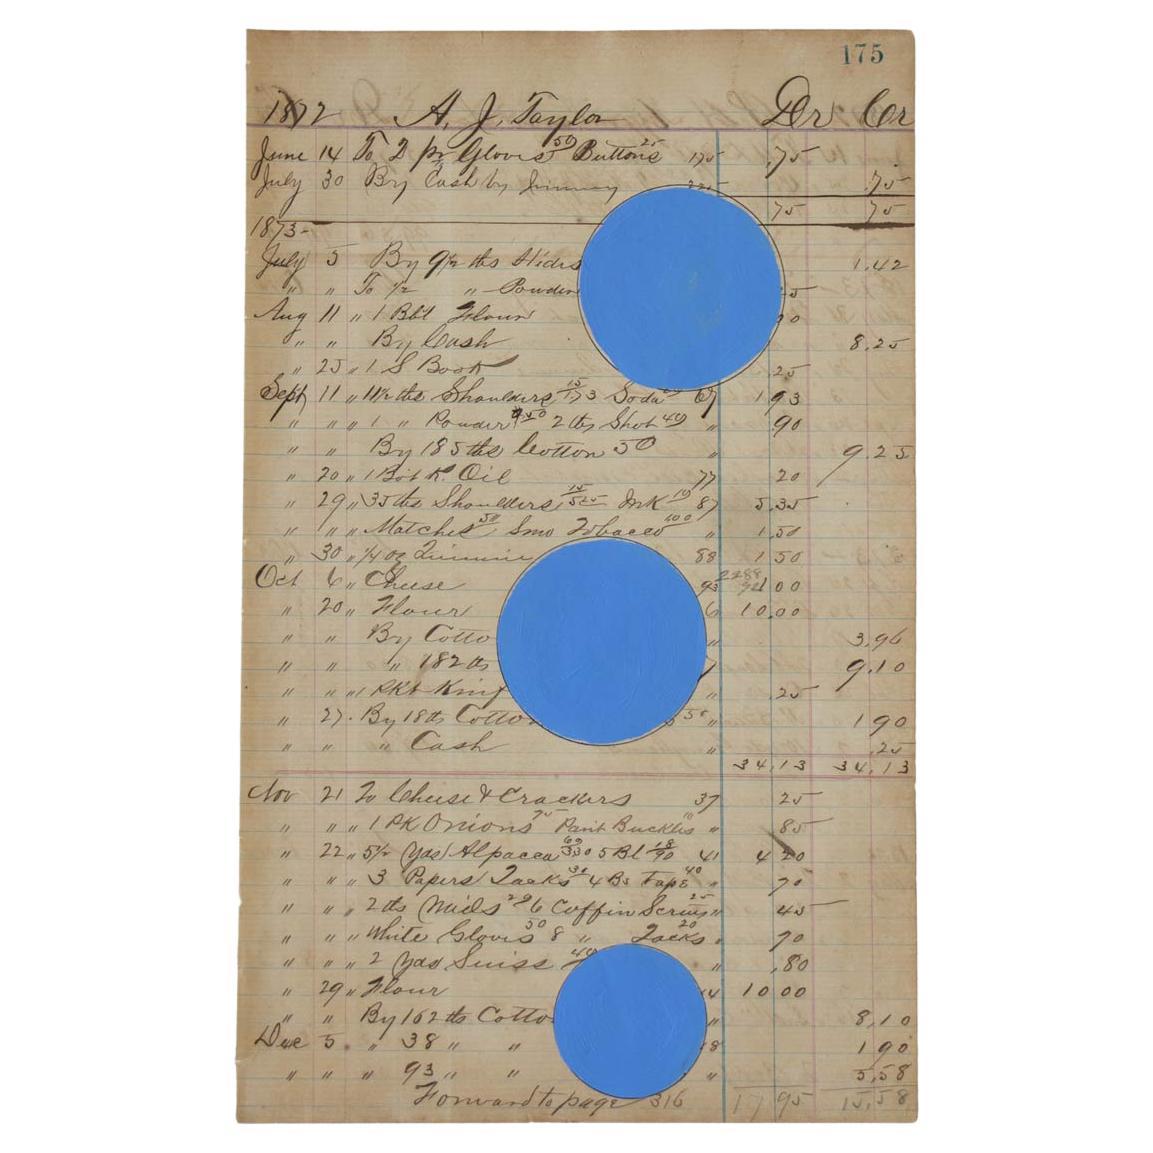 175
1872 A. J. Taylor Dr Cr
June 14 To 2 pr Gloves 50 Buttons 25 175 .75
July 30 By Cash by .75
75 75
1873
July 5 By 9 1/2 lbs Hides 1.42
" " To 1/2 " Powder
Aug 11 " 1 Bbl Flour
" " By Cash 8.25
" 25 " 1 S Book .25
Sept 11 " 11 1/2 lbs Shoulders 15 1.73 Soda 67 1 93
" " " 1 " Powder 50 2 lbs Shot 40 " 90
" " By 185 lbs Cotton 50 " 9.25
" 20 " 1 Oil 77 20
" 29 " 35 lbs Shoulders 15 5.25 Ink 10 87 5.35
" " " Matches 50 Smo Tobacco 100 " 1.50
" 30 " 1/4 oz 88 1 50
Oct 6 " Cheese 93 1 00
" 20 " Flour 6 10.00
" " By Cotto " 3.96
" " " 182 lbs " 9.10
" " " 1 Pkt Knif " .25
" 27. By 18 lbs Cotton " 1 90
" " " Cash " .25
34.13 34.13
Nov 21 To Cheese & Crackers 37 25
" " " 1 PK Onions 75 Pant Buckles 10 " 85
" 22 " 5 1/2 Yds Alpacca 60 3.30 5 Bl 18 90 41 4 20
" " " 3 Papers Tacks 30 4 Bs Tape 40 " 70
" " " 2 lbs Nails 20 6 Coffin Screws 25 " 45
" " " White Gloves 50 8 " Tacks 20 " 70
" " " 2 Yds Swiss 40 " .80
" 29 " Flour 10 00
" " By 162 lbs Cotto " 8.10
Dec 5 " 38 " " 1 90
" " " 93 " " " 5.58
Forward to page 316 17 95 15.58